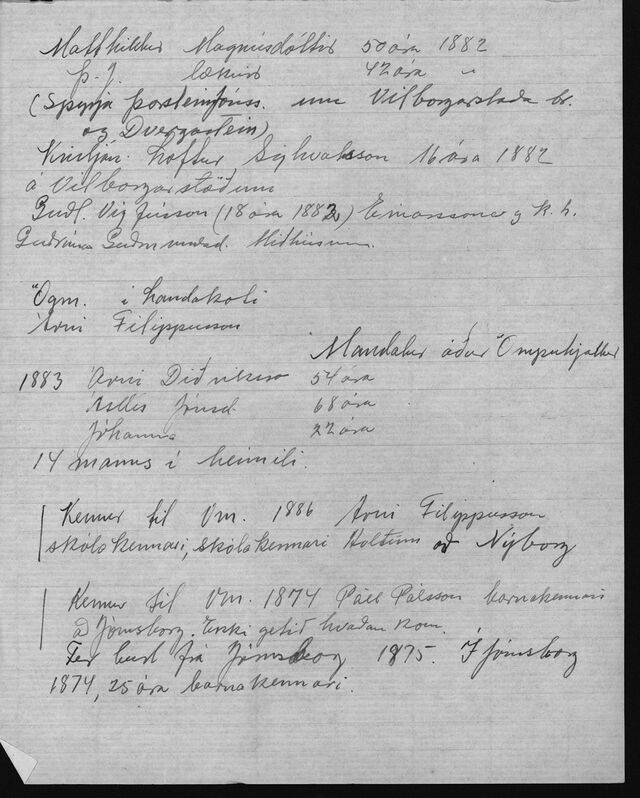 Matthildur Magnúsdóttir 50 ára 1882
Þ. J. læknir 42 ára "
(Spyrja Þorstein Jónss. um Vilborgarstaða br.
og Dvergastein)
Kristján Loftur Sighvatsson 16 ára 1882
á Vilborgarstöðum
Guðl. Vigfússon (18 ára 1882) Einarssonar og k. h.
Guðrúnar Guðmundsd. Miðhúsum.
Ögm. í Landakoti
Árni Filippusson
Mandalur áður Ömpuhjallur
1883 Árni Diðriksson 54 ára
Ásdís Jónsd. 68 ára
Jóhanna 22 ára
14 manns í heimili.
Kemur til Vm. 1886 Árni Filippusson
skólakennari, skólakennari Holtum að Nýborg
Kemur til Vm. 1874 Páll Pálsson barnakennari
að Jómsborg. Ekki getið hvaðan kom.
Fer burt frá Jómsborg 1875. Í Jómsborg
1874, 25 ára barnakennari.